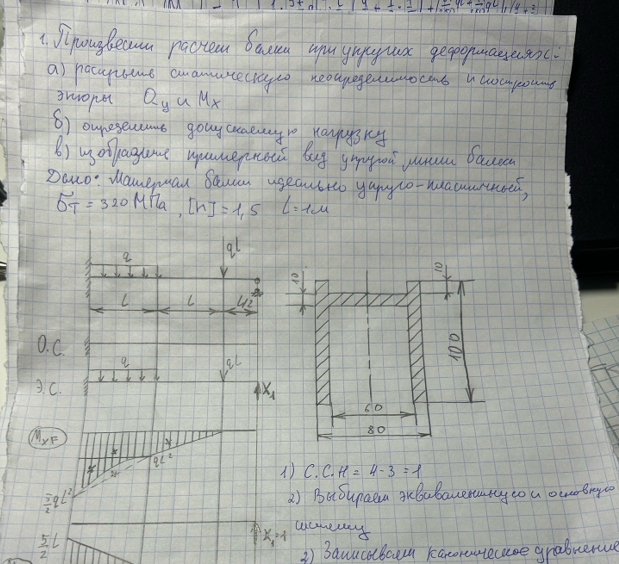 1. Произвести расчет балки при упругих деформациях:
а) раскрыть статическую неопределимость и построить
эпюры Qy и Mx
б) определить допускаемую нагрузку
в) изобразить примерный вид упругой линии балки
Дано: Материал балки идеально упруго-пластичный,
σт = 320 МПа, [n] = 1,5 l = 1м
q
ql
l
l
l/2
О.С.
Э.С.
q
ql
X1
MxF
ql²
5/2 l
X1=1
10
10
100
60
80
1) С.С.Н = 4-3 = 1
2) Выбираем эквивалентную и основную
систему
2) Записываем каноническое уравнение